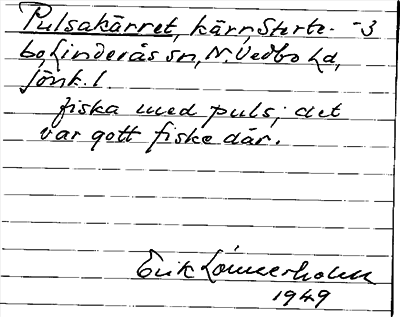 Pulsakärret, kärr, Sterte- -3
bo, Linderås sn, N. Vedbo hd,
Jönk. l
fiska med puls; det
var gott fiske där.
Erik Lönnerholm
1949